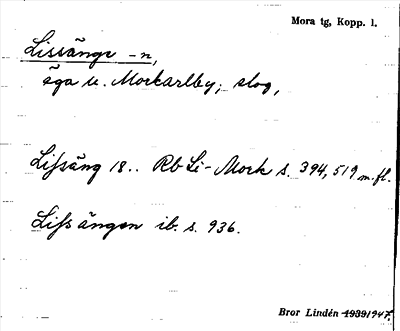 Mora tg, Kopp. l.
Lissänge -n,
äga u. Morkarlby; slog,
Lifsäng 18.. Rb Li-Mork s. 394, 519 m.fl.
Lifsängen ib. s. 936.
Bror Lindén 1939 1947.